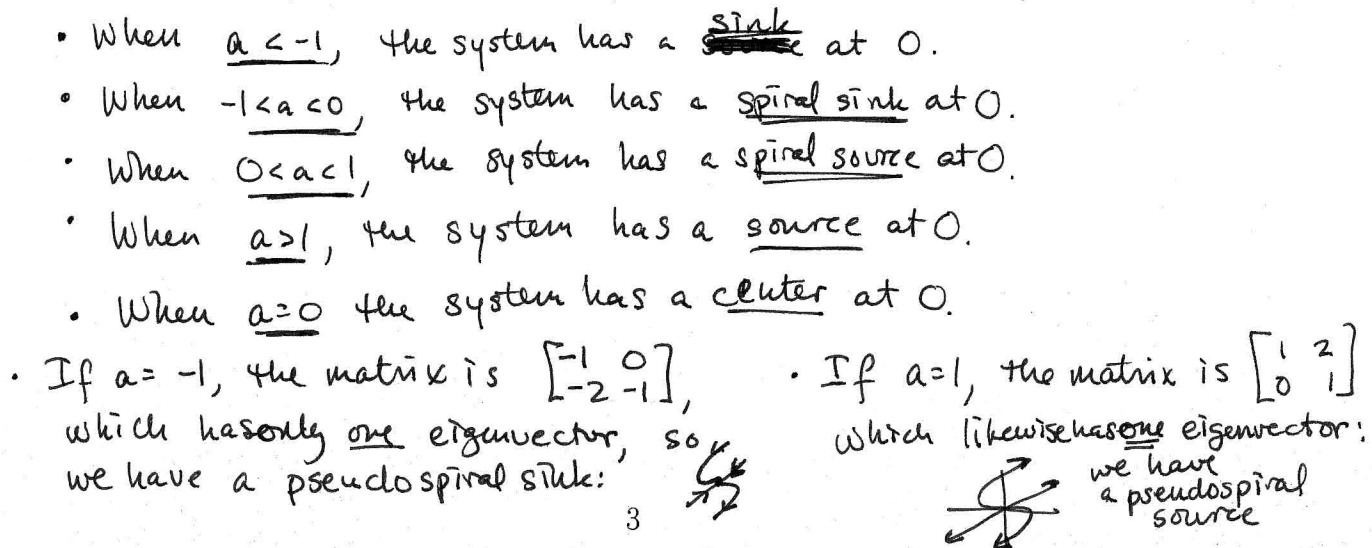 • When a < -1, the system has a sink at 0.
• When -1<a<0, the system has a spiral sink at 0.
• When 0<a<1, the system has a spiral source at 0.
• When a>1, the system has a source at 0.
• When a=0 the system has a center at 0.
• If a = -1, the matrix is [-1 0
-2 -1],
which has only one eigenvector, so
we have a pseudospiral sink:
• If a=1, the matrix is [1 2
0 1]
which likewise has one eigenvector:
we have
a pseudospiral
source
3